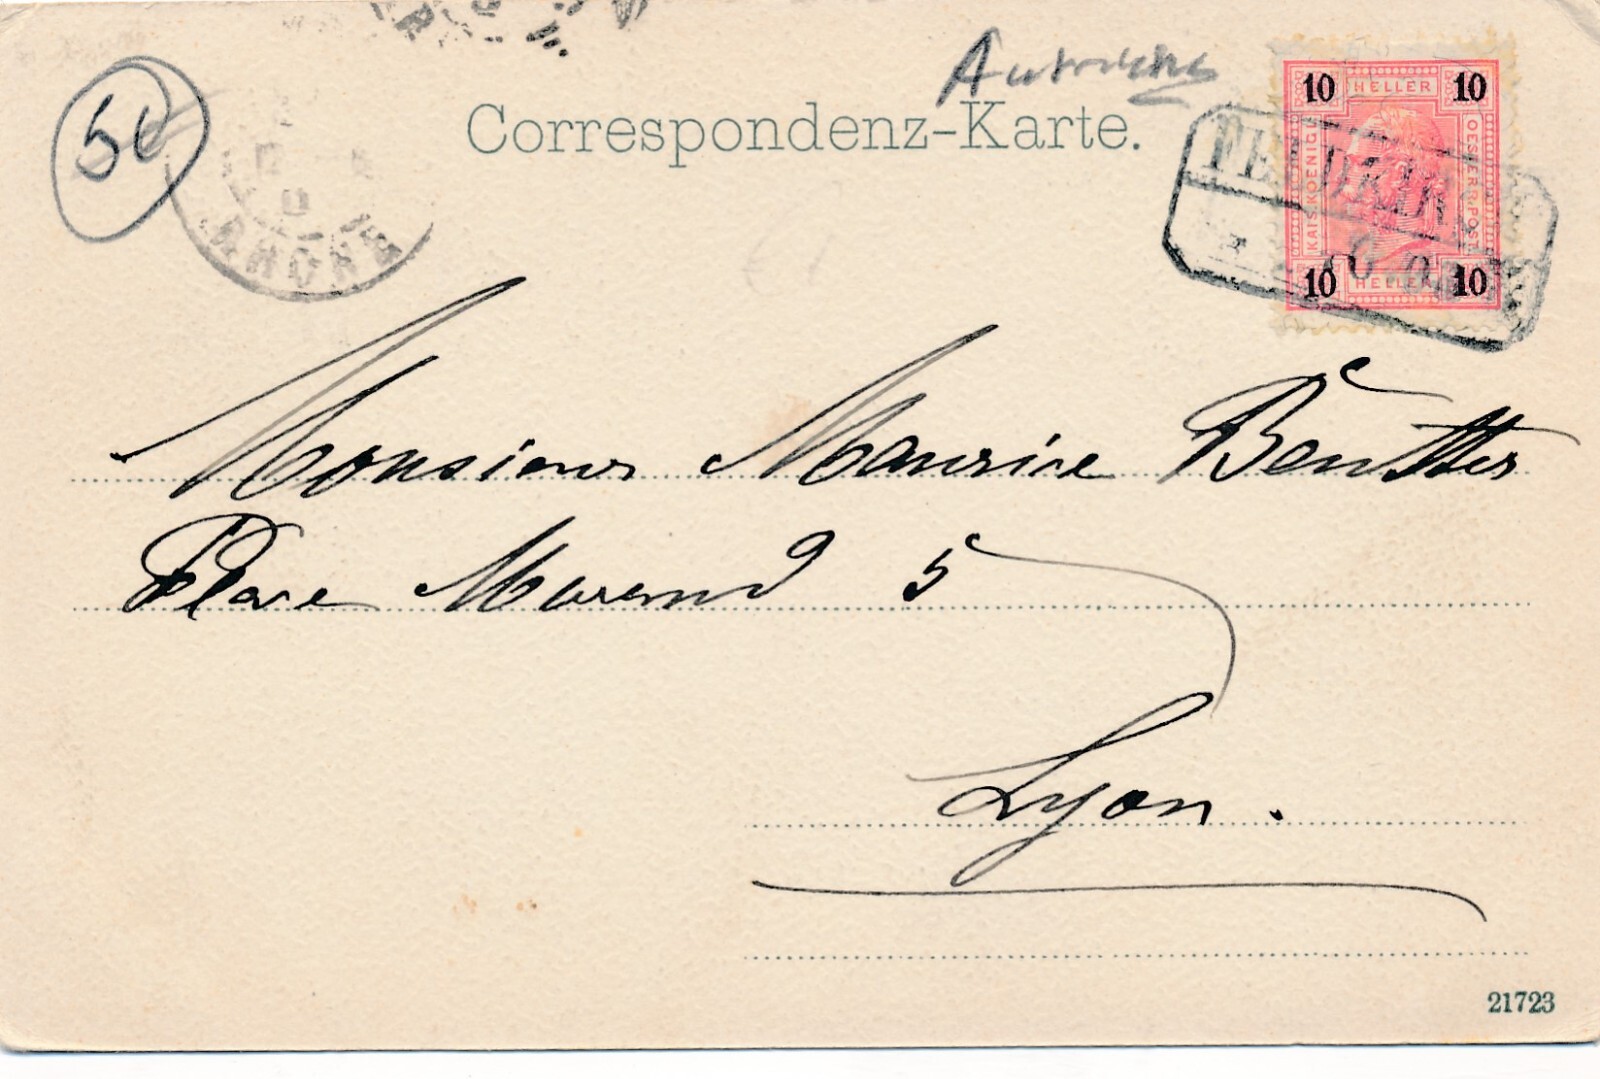 5c
Autriche
Correspondenz-Karte.
10 HELLER 10
KAIS. KOENIGL. OESTERR. POST.
10 HELLER 10
FELDKIRCH
RHONE
Monsieur Maurice Beutter
Place Morand 5
Lyon.
21723